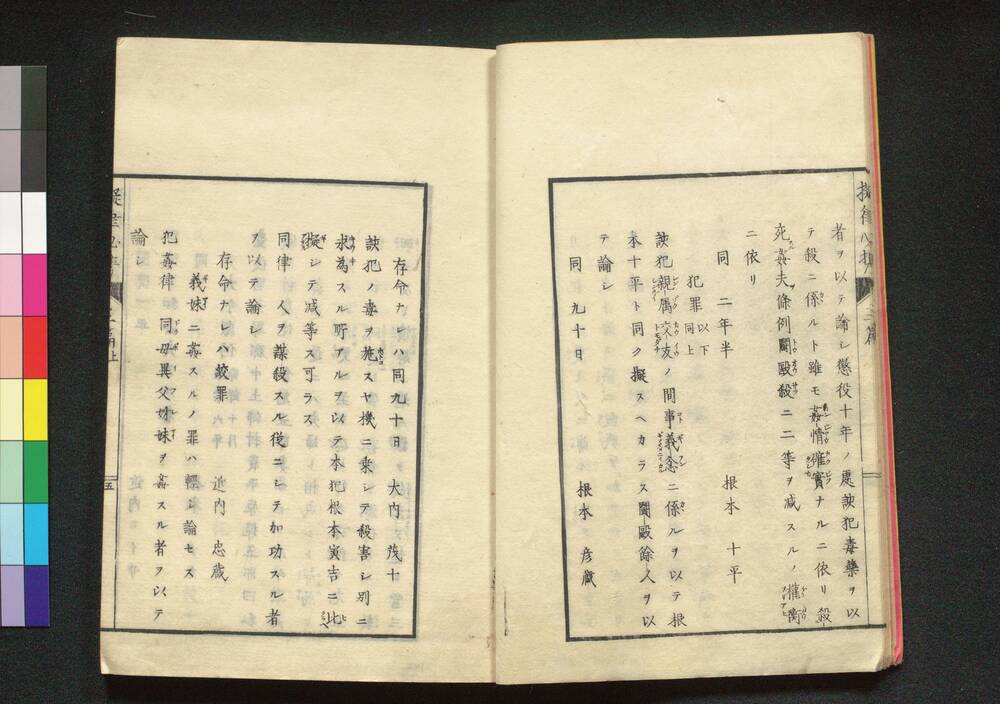 者ヲ以テ論シ懲役十年ノ處該犯毒藥ヲ以
テ殺ニ係ルト雖モ姦情確實ナルニ依リ殺
死姦夫條例鬪毆殺ニ二等ヲ減スルノ權衡
ニ依リ
同 二年半 根本 十平
犯罪以下同上
該犯親属交友ノ間事義忿ニ係ルヲ以テ根
本十平ト同ク擬スヘカラス鬪毆餘人ヲ以
テ論シ
同 九十日 根本 彦藏
存命ナレハ同九十日 大内 茂十
該犯ノ毒ヲ施スヤ機ニ乗シテ殺害シ別ニ
求為スル所アルヲ以テ本犯根本寅吉ニ比
擬シテ减等ス可ラス
同律 人ヲ謀殺スル從ニシテ加功スル者
ヲ以テ論シ
存命ナレハ絞罪 近内 忠藏
義妹ニ姦スルノ罪ハ輕シ論セス
犯姦律 同母異父姉妹ヲ姦スル者ヲ以テ
論シ
五